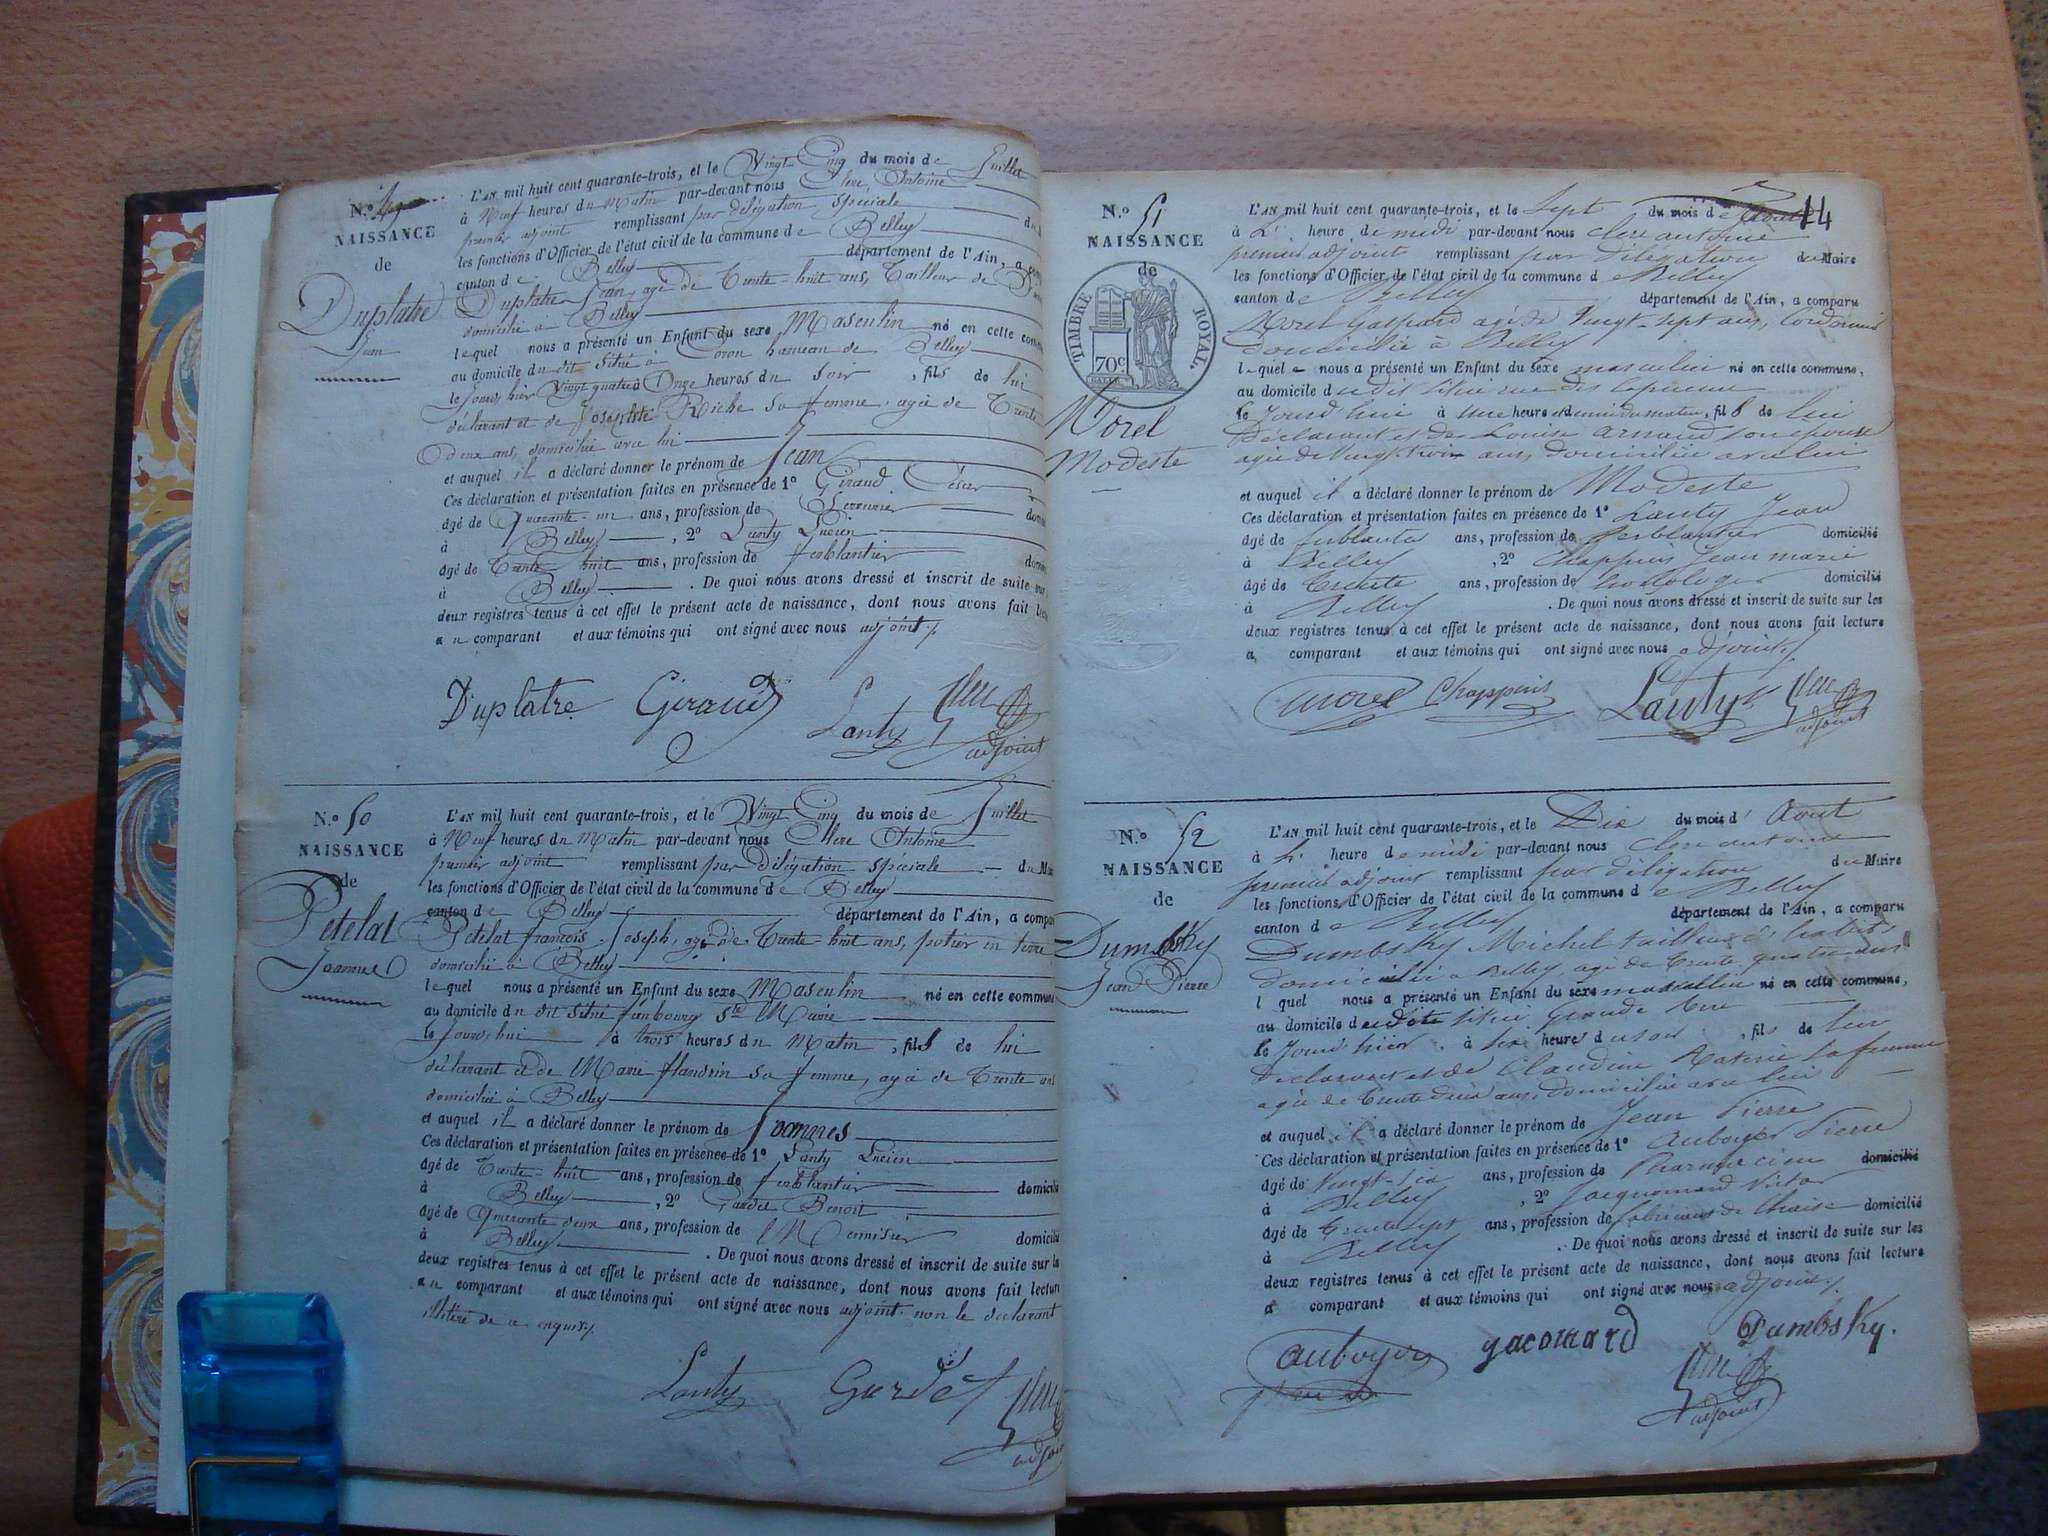 N.º 49
NAISSANCE
de
Duplatre
Jean
L'AN mil huit cent quarante-trois, et le Vingt Cinq du mois de Juillet
à Neuf heures du Matin par-devant nous Clerc, Antoine
premier adjoint remplissant par délégation spéciale
les fonctions d'Officier de l'état civil de la commune de Belley
canton de Belley département de l'Ain, a
Duplatre Jean, agé de Trente-huit ans, Tailleur de
domicilié à Belley
lequel nous a présenté un Enfant du sexe Masculin né en cette
au domicile du dit situé à Coron hameau de Belley
le jour, hier Vingt quatre à Onze heures du Soir, fils de lui
déclarant et de Josephte Riche Sa femme, agée de Trente
Deux ans, domiciliée avec lui
et auquel il a déclaré donner le prénom de Jean
Ces déclaration et présentation faites en présence de 1º Giraud César
âgé de Quarante-un ans, profession de Serrurier
à Belley, 2º Lanty Lucien
âgé de Trente huit ans, profession de ferblantier
à Belley. De quoi nous avons dressé et inscrit de suite sur
deux registres tenus à cet effet le présent acte de naissance, dont nous avons fait
au comparant et aux témoins qui ont signé avec nous adjoint.
Duplatre Giraud Lanty Clerc
adjoint
N.º 50
NAISSANCE
de
Petelat
Joannes
L'AN mil huit cent quarante-trois, et le Vingt Cinq du mois de Juillet
à Neuf heures du Matin par-devant nous Clerc Antoine
premier adjoint remplissant par Délégation spéciale du Maire
les fonctions d'Officier de l'état civil de la commune de Belley
canton de Belley département de l'Ain, a compar
Petelat françois-Joseph, agé de Trente-huit ans, potier en terre
domicilié à Belley
lequel nous a présenté un Enfant du sexe Masculin né en cette commune
au domicile du dit situé faubourg Ste Marie
le jourd'hui à trois heures du Matin, fils de lui
déclarant et de Marie flandrin Sa femme, agée de Trente ans
domiciliée à Belley
et auquel il a déclaré donner le prénom de Joannes
Ces déclaration et présentation faites en présence de 1º Lanty Lucien
âgé de Trente-huit ans, profession de ferblantier domicilié
à Belley, 2º Gardet Benoit
âgé de Quarante deux ans, profession de Menuisier domicilié
à Belley. De quoi nous avons dressé et inscrit de suite sur les
deux registres tenus à cet effet le présent acte de naissance, dont nous avons fait lecture
au comparant et aux témoins qui ont signé avec nous adjoint non le declarant
illitéré de ce enquis.
Lanty Gardet Clerc
adjoint
14
N.º 51
NAISSANCE
de
TIMBRE ROYAL
70c
Morel
Modeste
L'AN mil huit cent quarante-trois, et le Sept du mois de Aout
à heure de midi par-devant nous Clerc antoine
premier adjoint remplissant par délégation du Maire
les fonctions d'Officier de l'état civil de la commune de Belley
canton de Belley département de l'Ain, a comparu
Morel Gaspard agé de Vingt-sept ans, Cordonnier
domicilié à Belley
lequel nous a présenté un Enfant du sexe masculin né en cette commune,
au domicile du dit situé rue des
le jourd'hui à une heure et demie du matin, fils de lui
Déclarant et de Louise arnaud son épouse
agée de Vingt trois ans, domiciliée avec lui
et auquel il a déclaré donner le prénom de Modeste
Ces déclaration et présentation faites en présence de 1º Lanty Jean
âgé de ans, profession de ferblantier domicilié
à Belley, 2º Chappuis Jean marie
âgé de Trente ans, profession de horloger domicilié
à Belley. De quoi nous avons dressé et inscrit de suite sur les
deux registres tenus à cet effet le présent acte de naissance, dont nous avons fait lecture
a comparant et aux témoins qui ont signé avec nous adjoint.
morel Chappuis Lanty Clerc
adjoint
N.º 52
NAISSANCE
de
Dumbsky
Jean Pierre
L'AN mil huit cent quarante-trois, et le Dix du mois d'Aout
à heure de midi par-devant nous Clerc antoine
premier adjoint remplissant par délégation du Maire
les fonctions d'Officier de l'état civil de la commune de Belley
canton de Belley département de l'Ain, a comparu
Dumbsky Michel tailleur d'habits
domicilié a Belley, agé de trente quatre ans
lquel nous a présenté un Enfant du sexe masculin né en cette commune,
au domicile du dit situé grande Rue
le jour hier à six heures du soir, fils de lui
Declarant et de Claudine sa femme
agée de trente deux ans, domiciliée avec lui
et auquel il a déclaré donner le prénom de Jean Pierre
Ces déclaration et présentation faites en présence de 1º auboyer Pierre
âgé de Vingt-six ans, profession de Pharmacien domicilié
à Belley, 2º Jacquemard Victor
âgé de trente sept ans, profession de fabricant de chaise domicilié
à Belley. De quoi nous avons dressé et inscrit de suite sur les
deux registres tenus à cet effet le présent acte de naissance, dont nous avons fait lecture
a comparant et aux témoins qui ont signé avec nous adjoint.
auboyer gacomard Dumbsky.
Clerc
adjoint